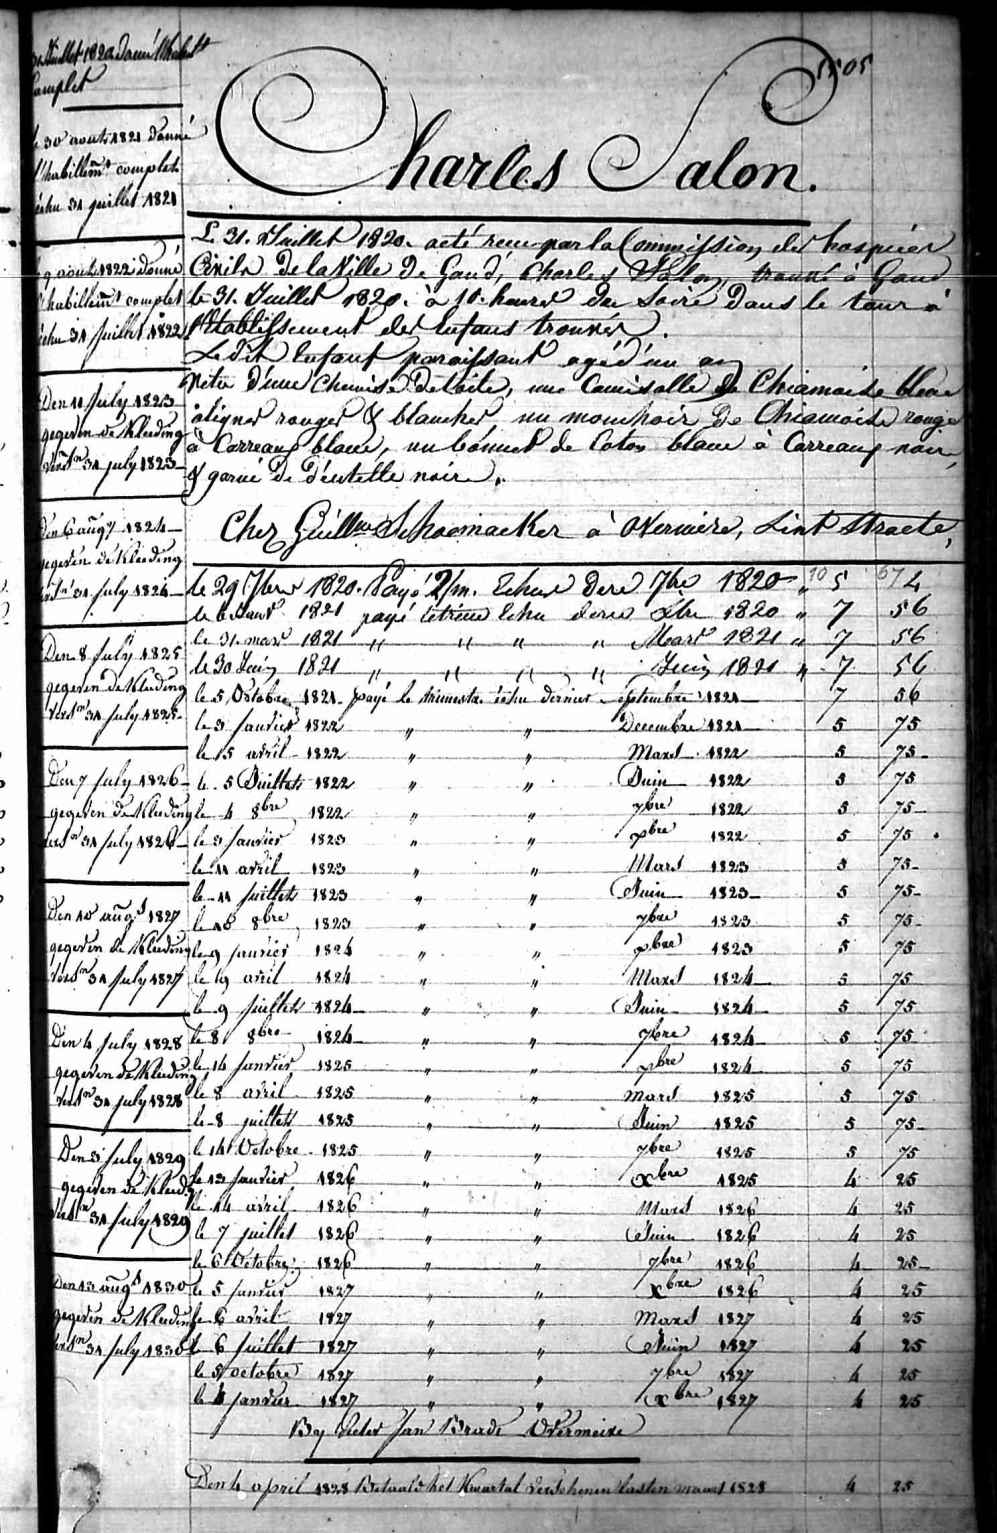 31 Juillet 1820 donné l'habillt
complet
le 30 aout 1821 donné
l'habillemt complet
échu 31 juillet 1821
9 aout 1822 donné
l'habillemt complet
échu 31 Juillet 1822
Den 11 July 1823
gegeven de Kleeding
versn 31 july 1823
Den 6 augt 1824
gegeven de Kleeding
versn 31 july 1824
Den 8 July 1825
gegeven de Kleeding
versn 31 July 1825
Den 7 July 1826
gegeven de Kleeding
versn 31 July 1826
Den 10 augt 1827
gegeven de Kleeding
versn 31 July 1827
Den 4 July 1828
gegeven de Kleeding
versn 31 july 1828
Den 3 July 1829
gegeven de Kleedg
versn 31 July 1829
Den 13 augt 1830
gegeven de Kleeding
versn 31 July 1830
1505
Charles Salon.
L 31. Juillet 1820. acté reçu par la Commission des hospices
Civils De la Ville De Gand, Charles Salon, trouvé à Gand
le 31. Juillet 1820. à 10. heures du Soire Dans le tour à
l'Etablissement des Enfans trouvés.
Ledit Enfant paraissant agé d'un an
vetu d'une Chemise De toile, une Camisolle De Chiamoise bleue
à lignes rouges & blanches un mouchoir De Chiamoise rouge
à Carreaux blanc, un bonnet de Coton blanc à Carreaux noir,
& garni De Dentelle noire.
Chez Guillme Schoemacker à Overmeire, Lint Straete,
le 29 7bre 1820. Payé 2/m. Echus Dere 7bre 1820 " 10 5 67 4
le 6 Janvr 1821 payé letrime Echu dernr Xbre 1820 " 7 56
le 31. mars 1821 " " " " Mars 1821 " 7 56
le 30 Juin 1821 " " " " Juin 1821 " 7 56
le 5 Octobre 1821 payé le trimestre échu dernier septembre 1821 7 56
le 3 Janvier 1822 " " Decembre 1821 5 75
le 5 avril 1822 " " Mars 1822 5 75
le 5 Juillet 1822 " " Juin 1822 5 75
le 4 8bre 1822 " " 7bre 1822 5 75
le 3 Janvier 1823 " " xbre 1822 5 75
le 11 avril 1823 " " Mars 1823 5 75
le 11 juillet 1823 " " Juin 1823 5 75
le 10 8bre 1823 " " 7bre 1823 5 75
le 9 janvier 1824 " " xbre 1823 5 75
le 9 avril 1824 " " Mars 1824 5 75
le 9 juillet 1824 " " Juin 1824 5 75
le 8 8bre 1824 " " 7bre 1824 5 75
le 14 Janvier 1825 " " xbre 1824 5 75
le 8 avril 1825 " " Mars 1825 5 75
le 8 juillet 1825 " " Juin 1825 5 75
le 14 Octobre 1825 " " 7bre 1825 5 75
le 13 Janvier 1826 " " xbre 1825 4 25
le 14 avril 1826 " " Mars 1826 4 25
le 7 juillet 1826 " " Juin 1826 4 25
le 6 Octobre 1826 " " 7bre 1826 4 25
le 5 janvier 1827 " " xbre 1826 4 25
le 6 avril 1827 " " Mars 1827 4 25
le 6 juillet 1827 " " Juin 1827 4 25
le 5 octobre 1827 " " 7bre 1827 4 25
le 4 janvier 1827 " " xbre 1827 4 25
By Pieter Jan Overmeire
Den 4 april 1828 Betaald het Kwartal verschenen lasten maart 1828 4 25